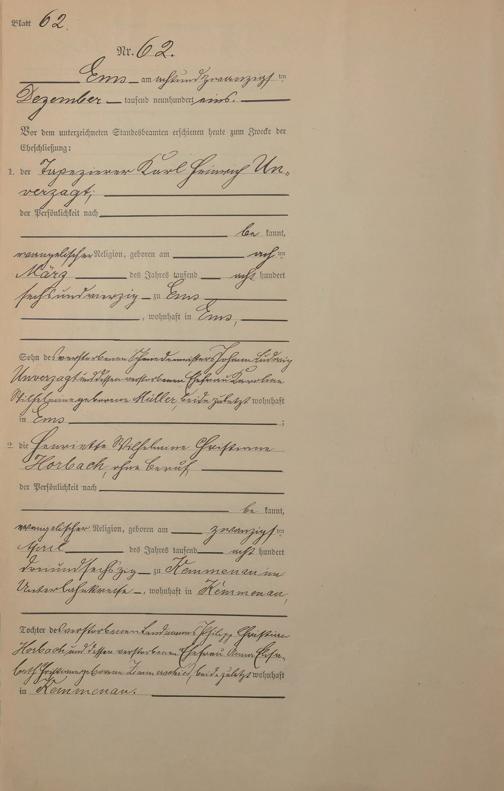 Blatt 62.
Nr. 62.
Ems am achtundzwanzigsten
Dezember tausend neunhundert eins.
Vor dem unterzeichneten Standesbeamten erschienen heute zum Zwecke der
Eheschließung:
1. der Tapezierer Karl Heinrich Un-
verzagt,
der Persönlichkeit nach
be kannt,
evangelischer Religion, geboren am achten
März des Jahres tausend acht hundert
sechsundvierzig zu Ems
, wohnhaft in Ems,
Sohn des verstorbenen Schneidermeisters Johann Ludwig
Unverzagt und dessen verstorbenen Ehefrau Karoline
Wilhelmine geborene Müller, beide zuletzt wohnhaft
in Ems ;
2. die Henriette Wilhelmine Christiane
Horbach, ohne Beruf
der Persönlichkeit nach
be kannt,
evangelischer Religion, geboren am zwanzigsten
April des Jahres tausend acht hundert
dreiundsechszig zu Kemmenau im
Unterlahnkreise, wohnhaft in Kemmenau,
Tochter des verstorbenen Landmanns Philipp Christian
Horbach und dessen verstorbenen Ehefrau Anna Elisa-
beth geborene beide zuletzt wohnhaft
in Kemmenau.